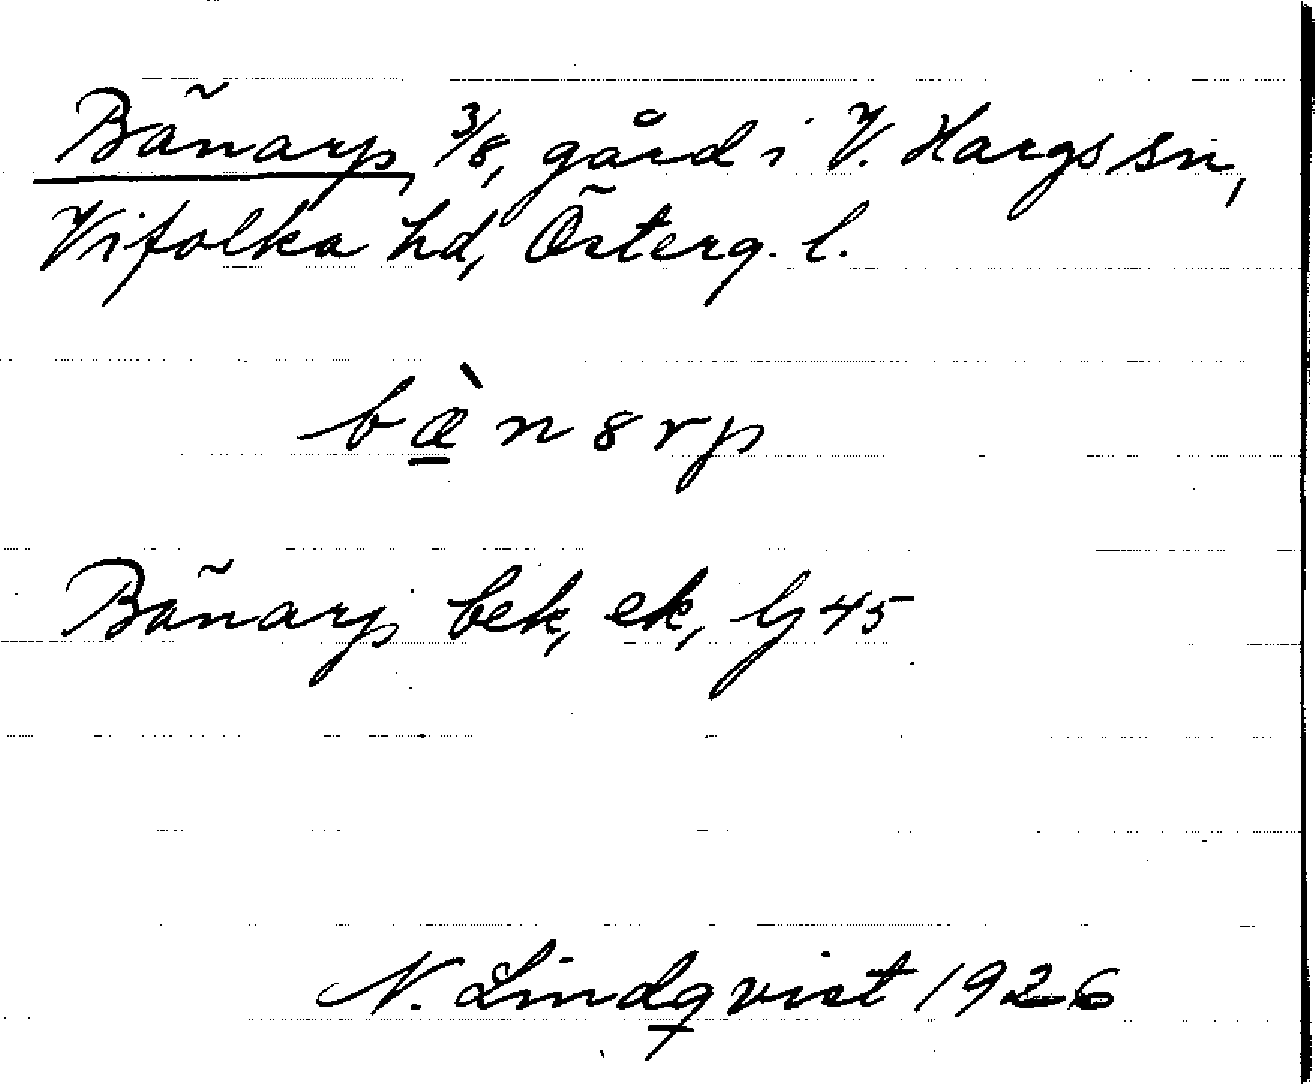 Bänarp, 3/8, gård i V. Hargs sn,
Vifolka hd, Österg. l.
bæ̀nȣrp
Bänarp bek, ek, lj 45
N. Lindqvist 1926